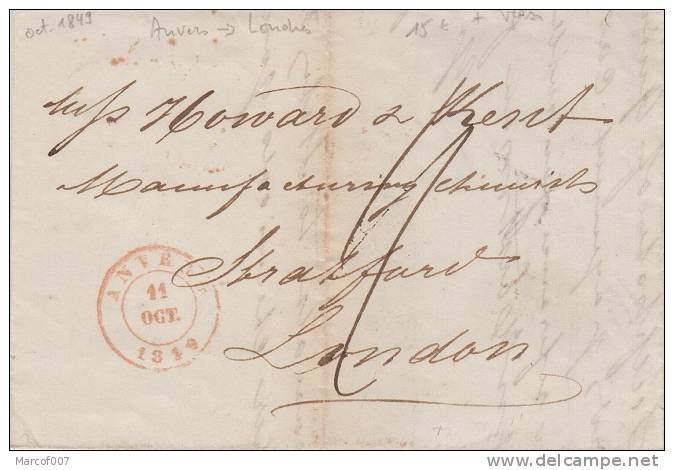 oct. 1849
Anvers → Londres
15 €
Messrs Howard & Kent
Manufacturing chimists
Stratford
London
ANVERS
11
OCT.
1849
Marcof007
delcampe.net